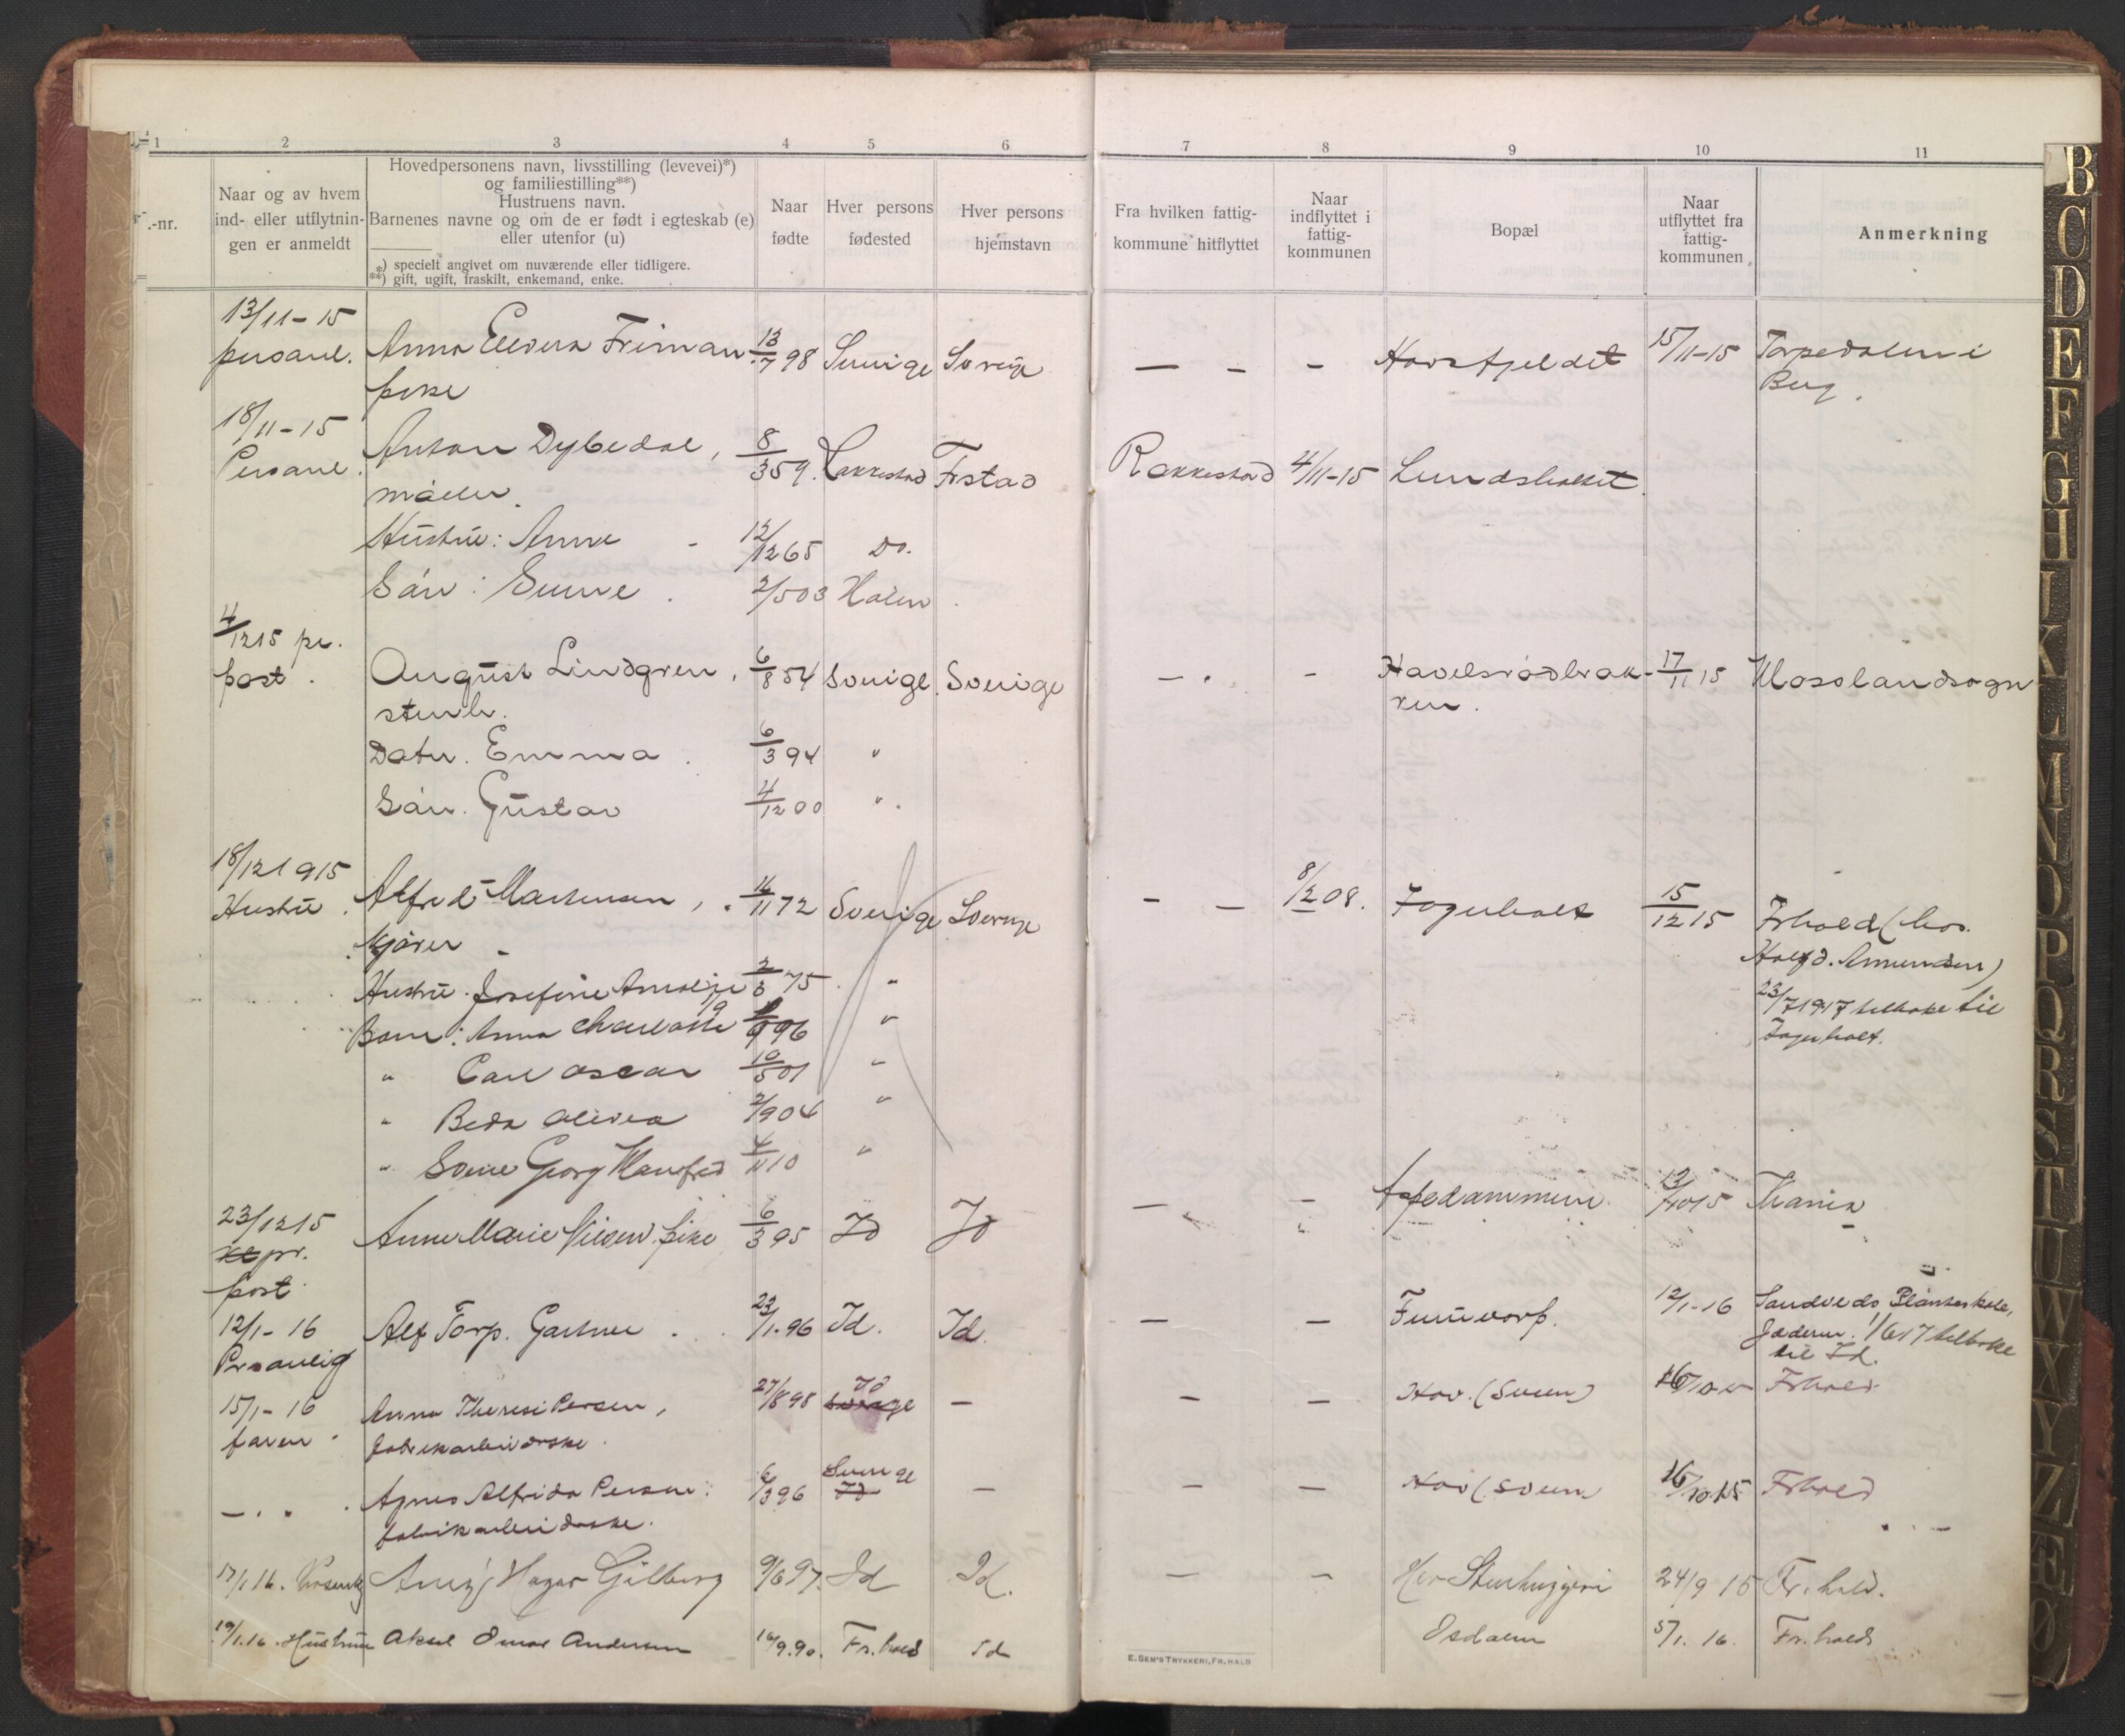 1 2 3 4 5 6 7 8 9 10 11
.-nr.
Naar og av hvem
ind- eller utflytnin-
gen er anmeldt
Hovedpersonens navn, livsstilling (levevei)*)
og familiestilling**)
Hustruens navn.
Barnenes navne og om de er født i egteskab (e)
eller utenfor (u)
*) specielt angivet om nuværende eller tidligere.
**) gift, ugift, fraskilt, enkemand, enke.
Naar
fødte
Hver persons
fødested
Hver persons
hjemstavn
Fra hvilken fattig-
kommune hitflyttet
Naar
indflyttet i
fattig-
kommunen
Bopæl
Naar
utflyttet fra
fattig-
kommunen
Anmerkning
13/11-15
Anna Elevira Friman 13/7 98 Sverige Sverige — - - Hovsfjeldet 15/11-15 Torpedalen i
pike Berg.
18/11-15
Anton Dybedal, 8/3 59. Rakkestad Frstad Rakkestad 4/11-15 Lundsholtet
maler.
Hustru: Anne - 12/12 65 Do.
Sön: Sunne. 2/5 03 Halden.
4/12 15 pr.
post. August Lindgren, 6/8 54 Sverige. Sverige - . - Havelsrødbrak- 17/11 15 Mosslandsogn
stenh. ken.
Datter. Emma. 6/3 94 "
Sön. Gustav 4/12 00 "
18/12 1915
Hustru. Alfred Martensen, 16/11 72 Sverige Sverige - - 8/2 08. Fagerholt 15/12 15 Frhald (hos.
Kjører Halfd. Amundsen)
Hustru. Josefine Amalie 2/3 75 " 23/7 1917 tilbake til
Barn: Anna Charlotte 96 " Fagerholt.
" Carl Oscar 10/5 01 "
" Beda Olivia 2/9 04 "
" Sven Georg Manfred 4/11 10 "
23/12 15 Anne Marie Nilsen pike 6/3 95 Id Id — - Aspedammen 15 Tharia
pr.
post.
12/1-16 Alf Torp. Gartner. 22/1.96 Id. Id. — — Furutorp. 12/1-16 Sandveds Planteskole,
Personlig Jæderen. 1/6 17 tilbake
til Id.
15/1-16 Anna Theresi Persen, 27/8 98 Id Sverige — - — Hov. (Sven) 16/10 15 Frhald
faren fabrikarbeiderske.
— . . Agnes Alfrida Persen: 6/3 96 Sverige Id — - - Hov (Sven) 16/10 15 Frhald
fabrikarbeiderske.
17/1 16. Hagar Gilberg 9/6 97. Id Id. — - Hov Stenhuggeri 24/9 15 Fr.hald.
19/1.16. Hustruen Aksel Omar Andersen 16/9.90. Fr.hald Id Isdalen 5/1.16. Fr.hald
E. SEM'S TRYKKERI, FR.HALD
B
C
D
E
F
G
H
I
K
L
M
N
O
P
Q
R
S
T
U
W
X
Y
Z
Æ
Ø